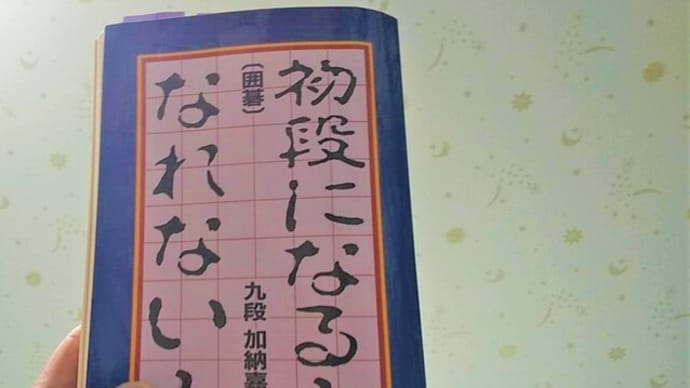 初段になる
〔囲碁〕
なれない
九段 加納